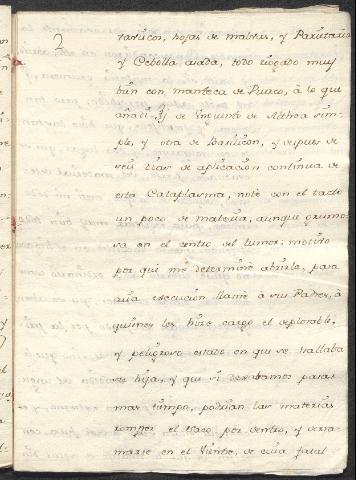 2
rasucos, hojas de malvas, y Parietaria,
y Cebolla asada, todo mojado muy
bien con manteca de Puerco, à lo que
añadi ℥j de Unguento de Althea sim-
ple, y otra de Basilicon, y despues de
seis dias de aplicacion continua de
esta Cataplasma, noté con el tacto
un poco de materia, aunque grumo-
sa en el centro del tumor; motivo
por que me determiné abrirle, para
cuia execucion llamé à sus Padres, à
quienes les hize cargo el deplorable,
y peligroso estado en que se hallaba
su hija, y que si dexabamos pasar
mas tiempo, podrian las materias
romper el saco por dentro, y derra-
marse en el Vientre, de cuia fatal